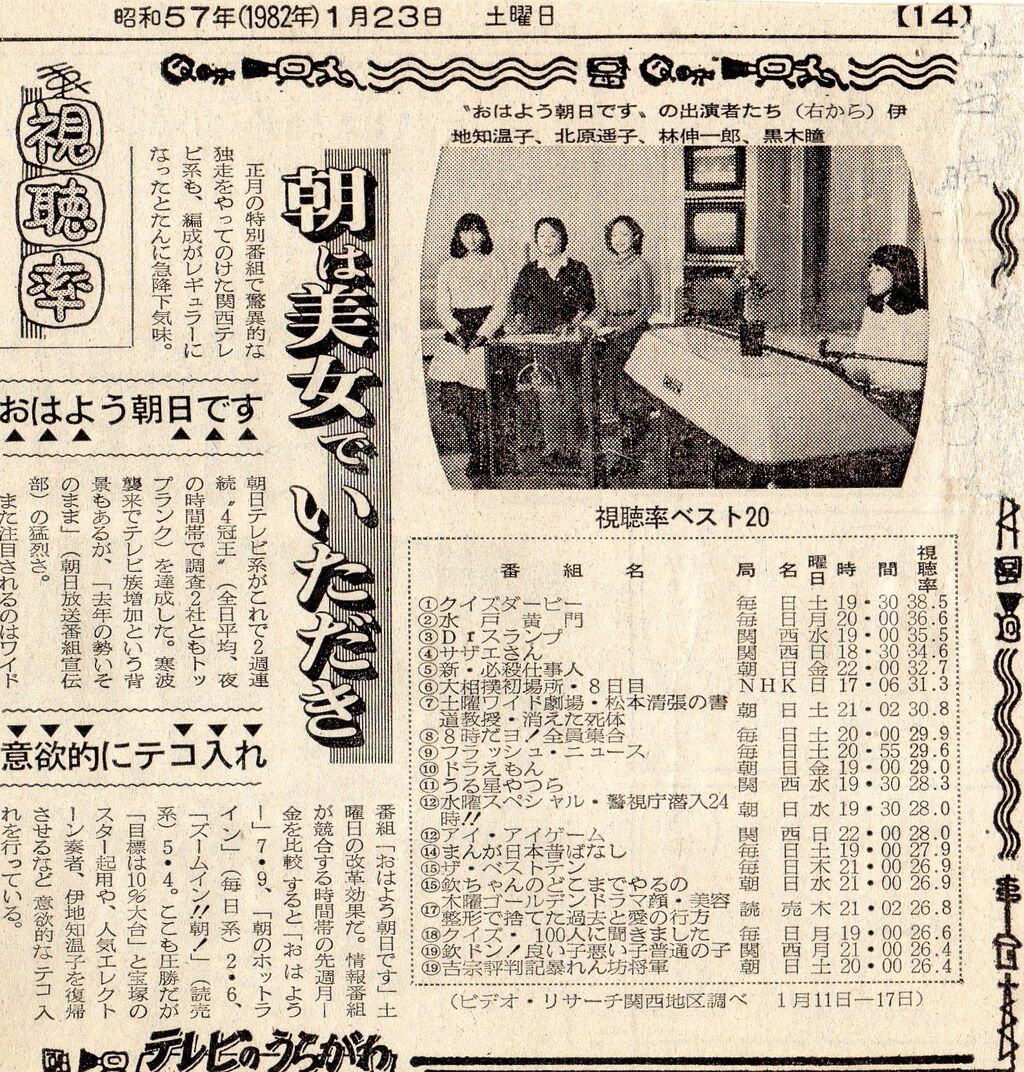 昭和57年(1982年)1月23日　土曜日
【14】
視聴率
〝おはよう朝日です〟の出演者たち（右から）伊
地知温子、北原遥子、林伸一郎、黒木瞳
朝は美女でいただき
正月の特別番組で驚異的な
独走をやってのけた関西テレ
ビ系も、編成がレギュラーに
なったとたんに急降下気味。
おはよう朝日です
朝日テレビ系がこれで2週連
続〝4冠王〟（全日平均、夜
の時間帯で調査2社ともトッ
プランク）を達成した。寒波
襲来でテレビ族増加という背
景もあるが、「去年の勢いそ
のまま」（朝日放送番組宣伝
部）の猛烈さ。
また注目されるのはワイド
意欲的にテコ入れ
番組「おはよう朝日です」土
曜日の改革効果だ。情報番組
が競合する時間帯の先週月ー
金を比較すると「おはよう
ー」7・9、「朝のホットラ
イン」（毎日系）2・6、
「ズームイン!!朝！」（読売
系）5・4。ここも圧勝だが
「目標は10％大台」と宝塚の
スター起用や、人気エレクト
ーン奏者、伊地知温子を復帰
させるなど意欲的なテコ入
れを行っている。
視聴率ベスト20
番組名　局名　曜日　時間　視聴率
①クイズダービー　毎日　土　19・30　38.5
②水戸黄門　毎日　月　20・00　36.6
③Drスランプ　関西　水　19・00　35.5
④サザエさん　関西　日　18・30　34.6
⑤新・必殺仕事人　朝日　金　22・00　32.7
⑥大相撲初場所・8日目　NHK　日　17・06　31.3
⑦土曜ワイド劇場・松本清張の書
道教授・消えた死体　朝日　土　21・02　30.8
⑧8時だヨ！全員集合　毎日　土　20・00　29.9
⑨フラッシュ・ニュース　毎日　土　20・55　29.6
⑩ドラえもん　朝日　金　19・00　29.0
⑪うる星やつら　関西　水　19・30　28.3
⑫水曜スペシャル・警視庁潜入24
時!!　朝日　水　19・30　28.0
⑫アイ・アイゲーム　関西　日　22・00　28.0
⑭まんが日本昔ばなし　毎日　土　19・00　27.9
⑮ザ・ベストテン　毎日　木　21・00　26.9
⑮欽ちゃんのどこまでやるの　朝日　水　21・00　26.9
⑰木曜ゴールデンドラマ顔・美容
整形で捨てた過去と愛の行方　読売　木　21・02　26.8
⑱クイズ・100人に聞きました　毎日　月　19・00　26.6
⑲欽ドン！良い子悪い子普通の子　関西　月　21・00　26.4
⑲吉宗評判記暴れん坊将軍　朝日　土　20・00　26.4
（ビデオ・リサーチ関西地区調べ　1月11日―17日）
テレビのうらがわ